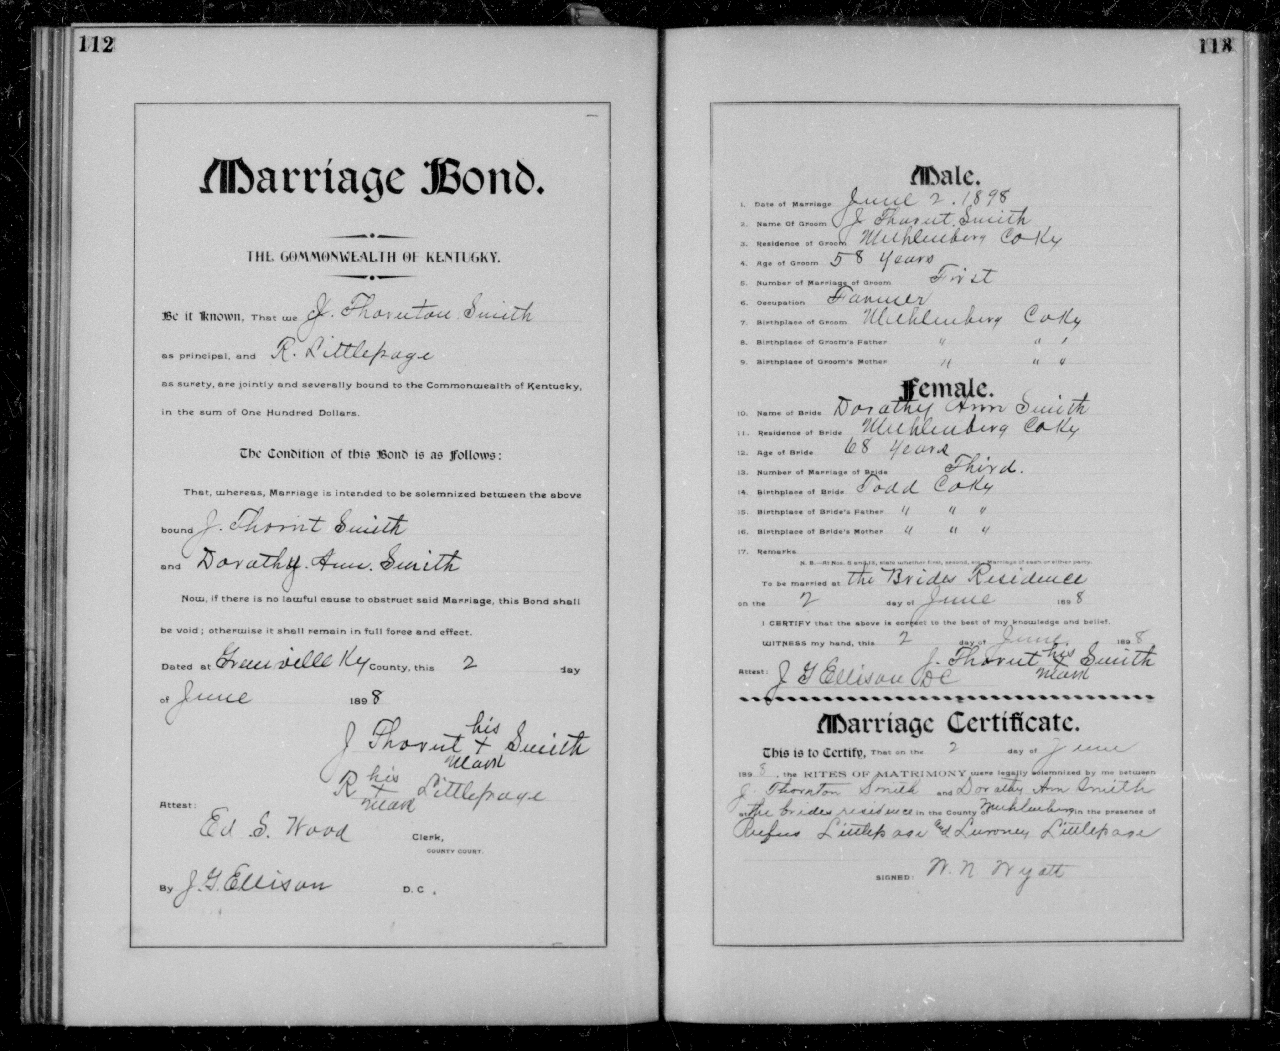 112
Marriage Bond.
THE COMMONWEALTH OF KENTUCKY.
Be it Known, That we J. Thornton Smith
as principal, and R. Littlepage
as surety, are jointly and severally bound to the Commonwealth of Kentucky,
in the sum of One Hundred Dollars.
The Condition of this Bond is as follows:
That, whereas, Marriage is intended to be solemnized between the above
bound J. Thornt Smith
and Dorathy Ann. Smith
Now, if there is no lawful cause to obstruct said Marriage, this Bond shall
be void; otherwise it shall remain in full force and effect.
Dated at Greenville Ky County, this 2 day
of June 1898
his
J Thornt + Smith
mark
his
R + Littlepage
mark
Attest:
Ed S. Wood Clerk,
COUNTY COURT.
By J. G. Ellison D. C.
113
Male.
1. Date of Marriage June 2. 1898
2. Name Of Groom J Thornt. Smith
3. Residence of Groom Muhlenberg Co Ky
4. Age of Groom 58 years
5. Number of Marriage of Groom First
6. Occupation Farmer
7. Birthplace of Groom Muhlenberg Co Ky
8. Birthplace of Groom's Father " " "
9. Birthplace of Groom's Mother " " "
Female.
10. Name of Bride Dorathy Ann Smith
11. Residence of Bride Muhlenberg Co Ky
12. Age of Bride 68 years
13. Number of Marriage of Bride Third.
14. Birthplace of Bride Todd Co Ky
15. Birthplace of Bride's Father " " "
16. Birthplace of Bride's Mother " " "
17. Remarks
N. B.—At Nos. 5 and 13, state whether first, second, etc., marriage of each or either party.
To be married at the Brides Residence
on the 2 day of June 1898
I CERTIFY that the above is correct to the best of my knowledge and belief.
WITNESS my hand, this 2 day of June 1898
his
J. Thornt + Smith
mark
Attest: J G Ellison DC
Marriage Certificate.
This is to Certify, That on the 2 day of June
1898, the RITES OF MATRIMONY were legally solemnized by me between
J. Thornton Smith and Dorathy Ann Smith
at the brides residence in the County of Muhlenberg in the presence of
Rufus Littlepage and Luroney Littlepage
SIGNED: W. N Wyatt